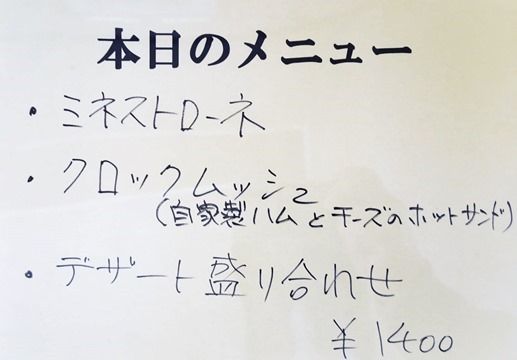 本日のメニュー
・ミネストローネ
・クロックムッシュ
(自家製ハムとチーズのホットサンド)
・デザート盛り合わせ
¥1400